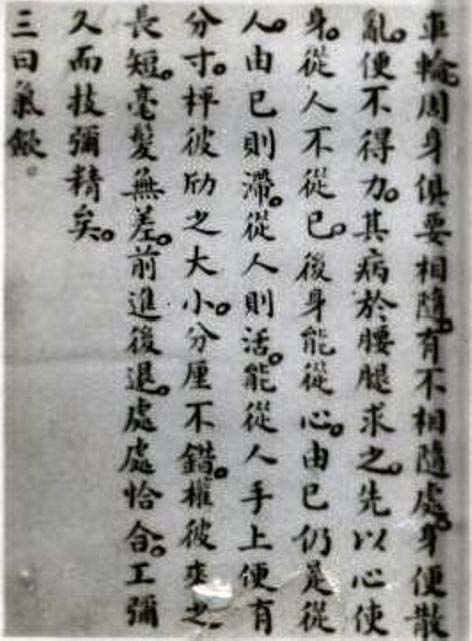 車輪。周身俱要相隨。有不相隨處。身便散
亂。便不得力。其病於腰腿求之。先以心使
身。從人不從己。後身能從心。由己仍是從
人。由己則滯。從人則活。能從人手上便有
分寸。枰彼劤之大小。分厘不錯。權彼來之
長短。毫髮無差。前進後退。處處恰合。工彌
久而技彌精矣。
三曰氣歛。